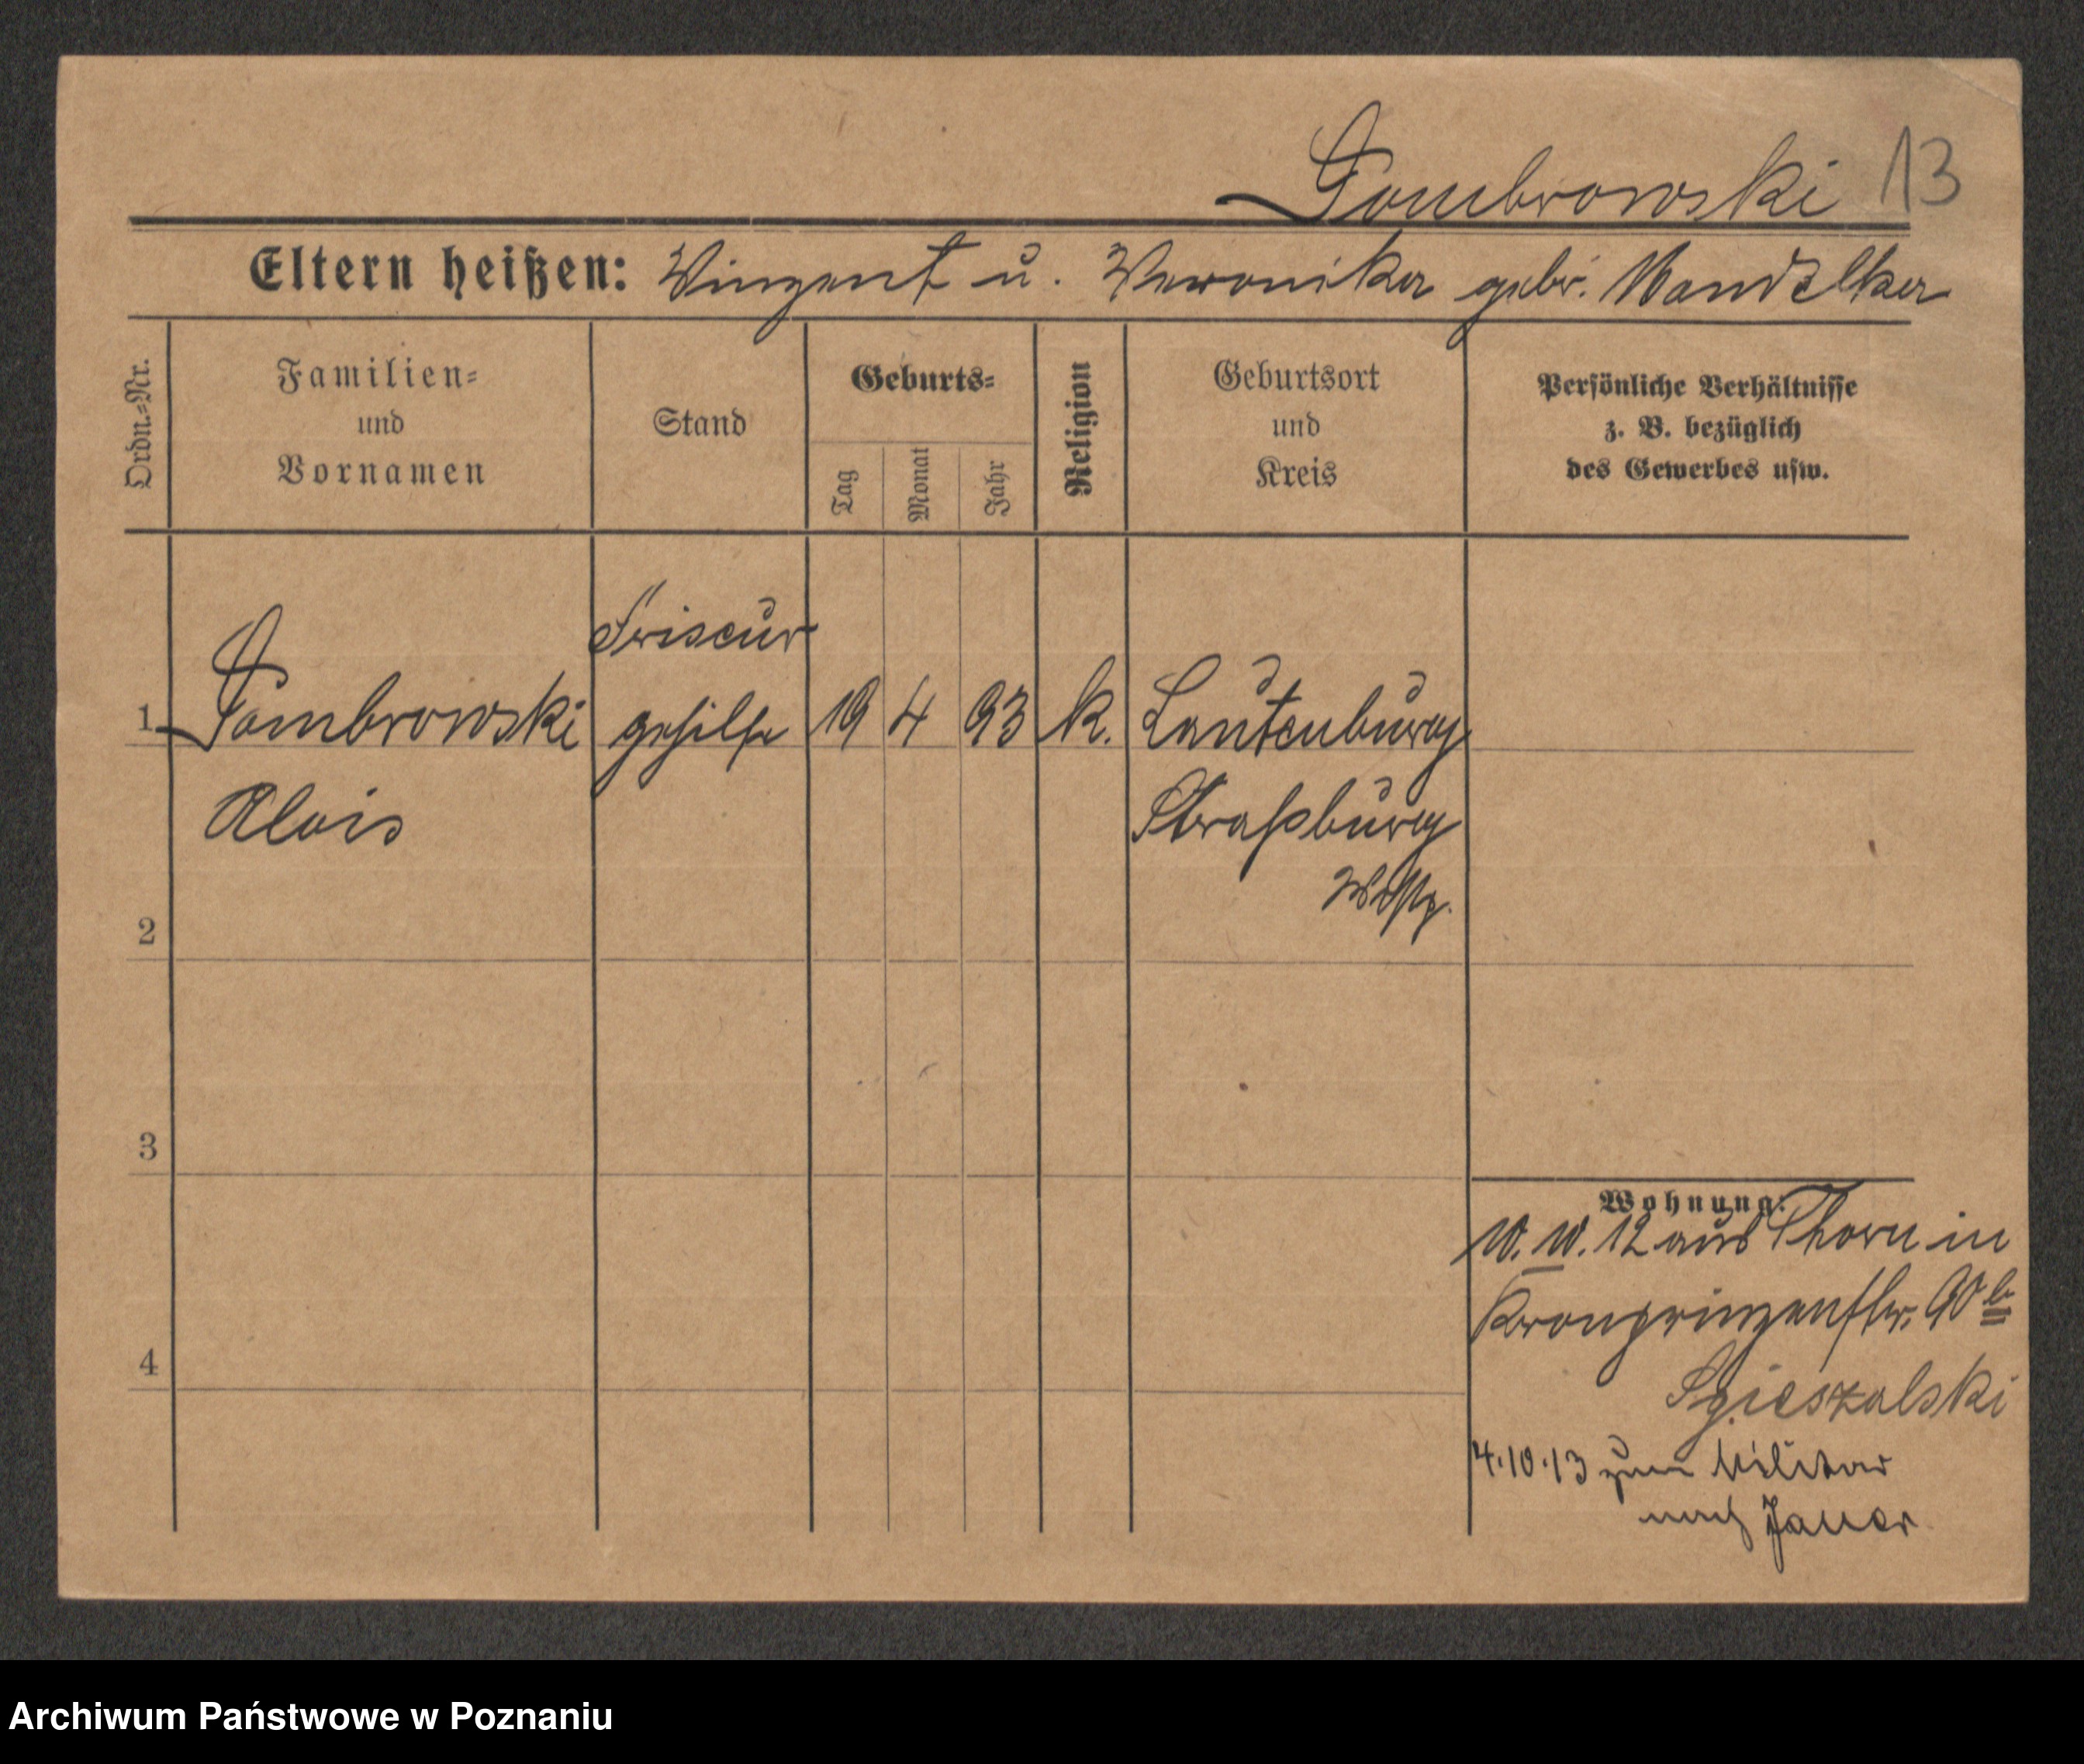 Dombrowski 13
Eltern heißen: Vinzent u. Veronika gebr. Mandelka
Ordn.-Nr.
Familien-
und
Vornamen
Stand
Geburts-
Tag
Monat
Jahr
Religion
Geburtsort
und
Kreis
Persönliche Verhältnisse
z. B. bezüglich
des Gewerbes usw.
Friseur
1 Dombrowski gehilfe 19 4 93 k. Lautenburg
Alois Straßburg
Westpr.
2
3
4
Wohnung:
10. 10. 12 aus Thorn in
Kronprinzenstr. 90 b
4.10.13 zum Militär
nach Jauer
Archiwum Państwowe w Poznaniu